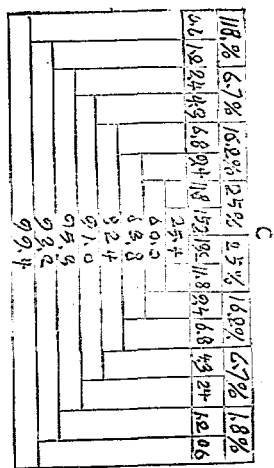 C
1.8% 6.7% 16.0% 25% 25% 16.0% 6.7% 1.8%
1.2 2.4 4.3 6.8 9.4 11.8 11.8 9.4 6.8 4.3 2.4 1.2 0.6
68.8
82.4
91.0
95.8
98.2
99.4